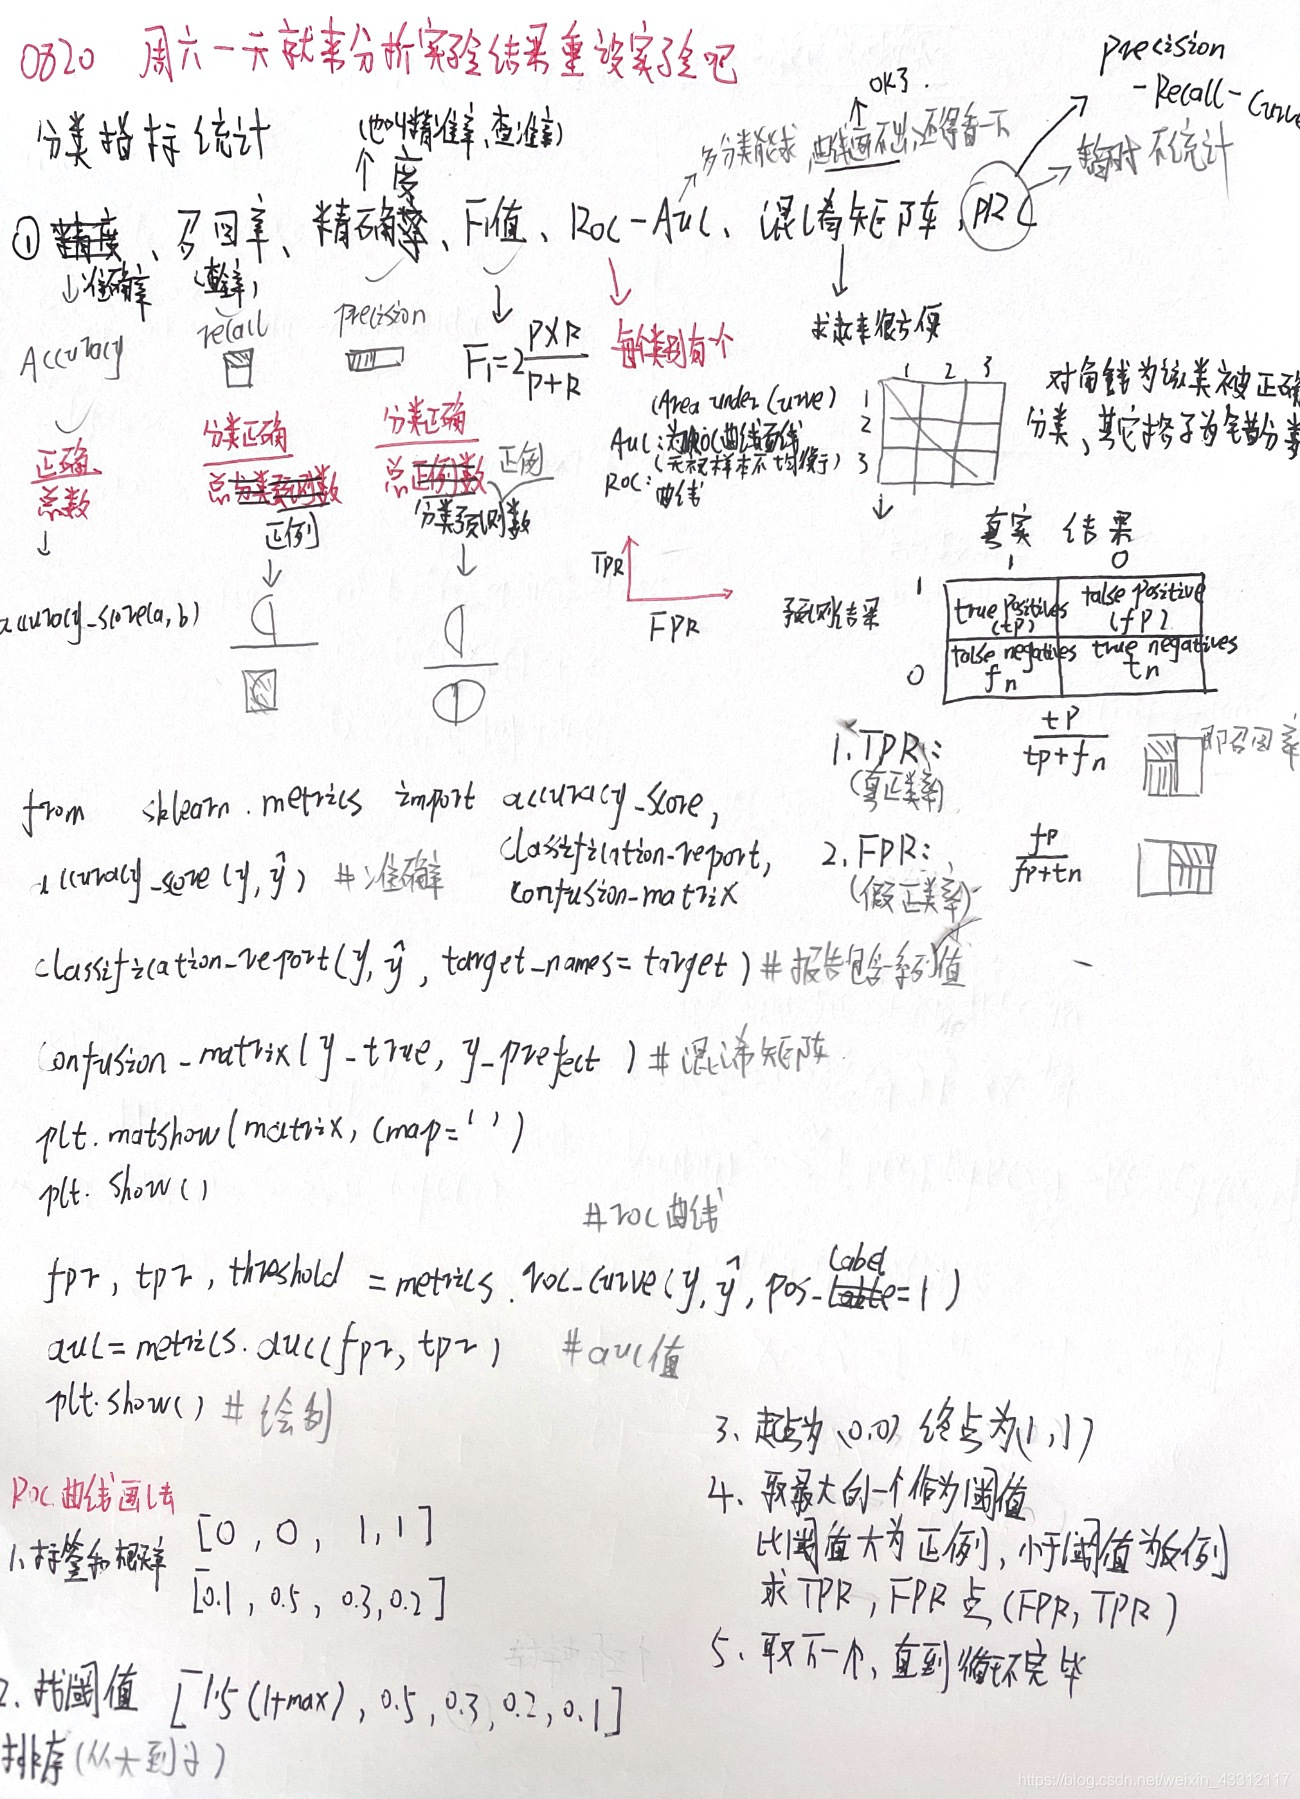 0820 周六一天就来分析实验结果重设实验吧
分类指标统计
(也叫精准率、查准率)
度
OK了.
多分类能求,曲线画不出,还得看一下
precision
-Recall-Curve
暂时不统计
① 精度、召回率、精确率、F1值、ROC-AUC、混淆矩阵、PRC
准确率
(查全率)
Accuracy
recall
precision
F1=2 P×R
P+R
每个类别有个
求起来很方便
1 2 3
1
2
3
对角线为该类被正确
分类,其它格子为错分类
正确
总数
分类正确
总分类预测数
正例
分类正确
总正例数
正例
分类预测数
(Area under Curve)
AUC:为ROC曲线面线
(无视样本不均衡)
ROC:
曲线
TPR
FPR
accuracy_score(a,b)
真实结果
1 0
预测结果
1
true positives
(tp)
false positive
(fp)
0
false negatives
fn
true negatives
tn
1. TPR:
(真正类率)
tp
tp+fn
即召回率
2. FPR:
(假正类率)
fp
fp+tn
from sklearn.metrics import accuracy_score,
classification-report,
confusion-matrix
accuracy_score(y,ŷ) #准确率
classification-report(y,ŷ, target_names=target) #报告包含一系列值
confusion-matrix(y-true, y-prefect) #混淆矩阵
plt.matshow(matrix, cmap='')
plt.show()
#roc曲线
fpr, tpr, threshold = metrics.roc-curve(y,ŷ, pos-label=1)
auc=metrics.auc(fpr, tpr) #auc值
plt.show() #绘制
ROC曲线画法
1、标签和概率
[0, 0, 1, 1]
[0.1, 0.5, 0.3, 0.2]
2、找阈值 [1.5(1+max), 0.5, 0.3, 0.2, 0.1]
排序(从大到小)
3、起点为(0,0) 终点为(1,1)
4、取最大的一个作为阈值
比阈值大为正例,小于阈值为反例
求TPR, FPR 点(FPR, TPR)
5、取下一个,直到循环完毕
https://blog.csdn.net/weixin_43312117